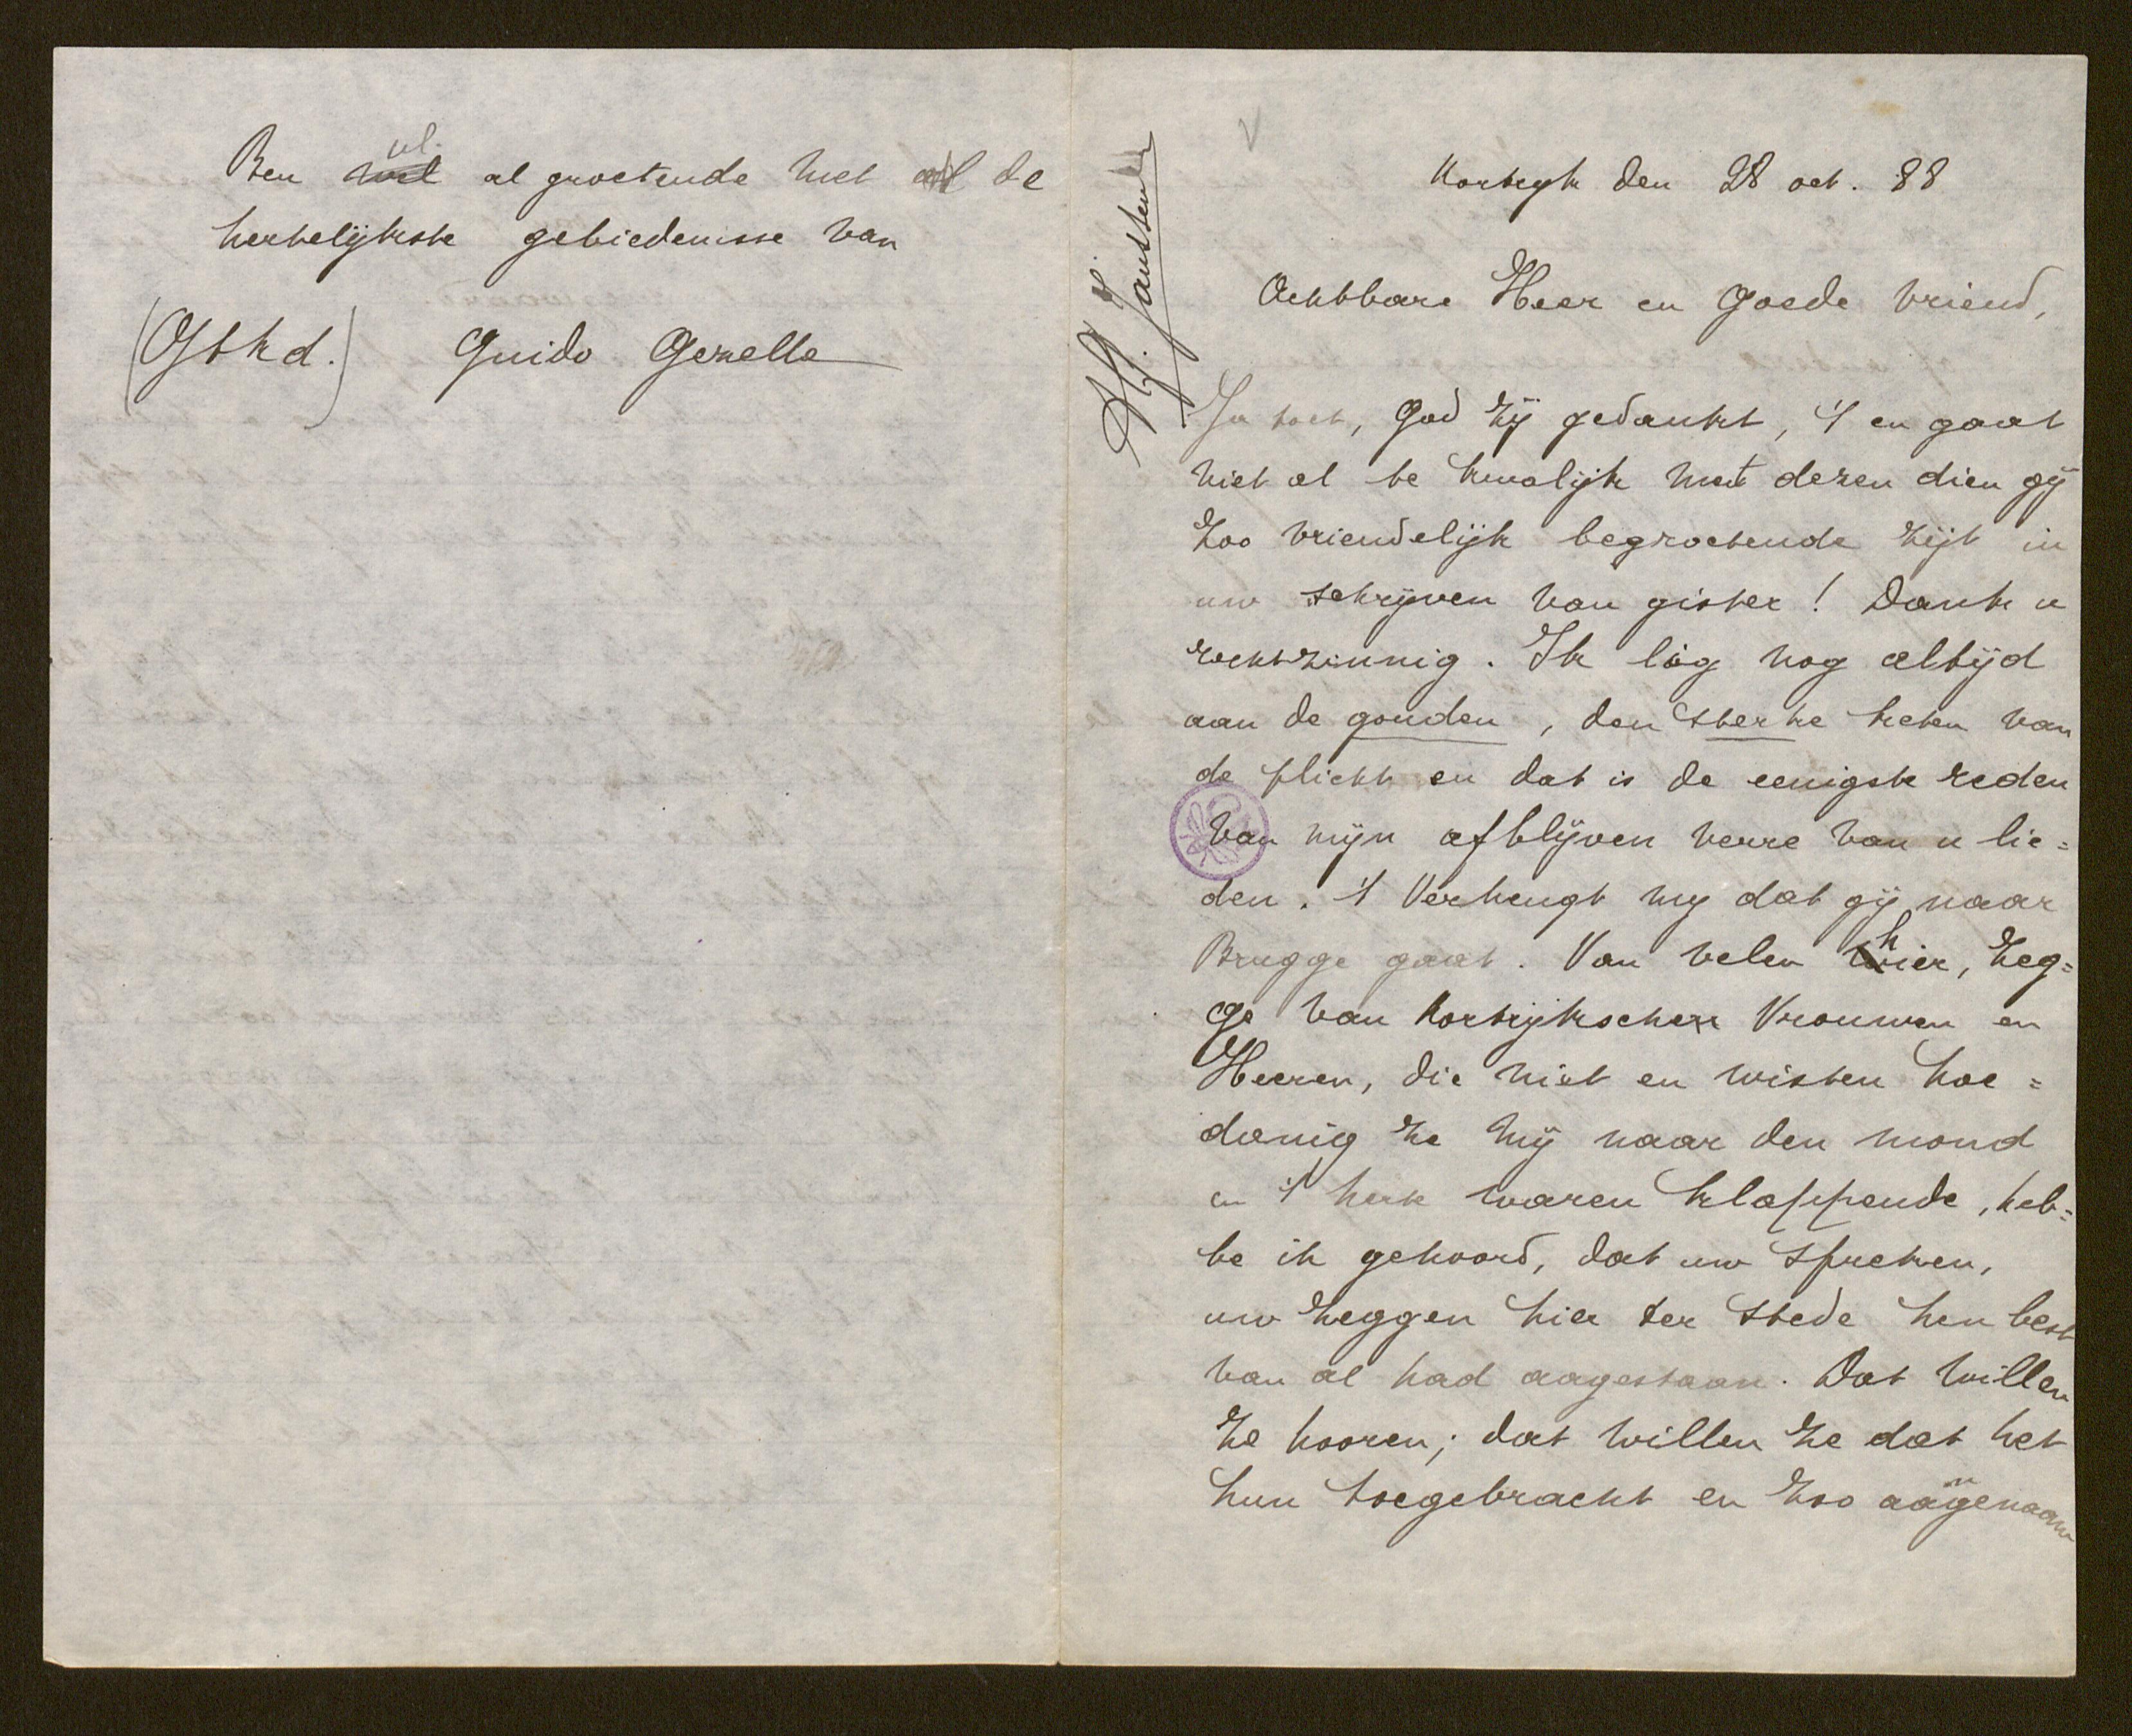 Ben ul. al groetende met al de
hertelijkste gebiedenisse van
(Gtkd.) Guido Gezelle
Kortryk den 28 oct. 88
Achtbare Heer en Goede Vriend,
Ja toch, God zij gedankt, 't en gaat
niet al te kwalijk met dezen dien gij
zoo vriendelijk begroetende zijt in
uw schrijven van gister! Dank u
rechtzinnig. Ik lig nog altijd
aan de gouden, den sterke keten van
de plicht en dat is de eenigste reden
van mijn afblijven verre van u lie=
den. 't Verheugt my dat gij naar
Brugge gaat. Van velen hier, zeg=
ge van Kortrijkschen Vrouwen en
Heeren, die niet en wisten hoe=
danig ze mij naar den mond
en 't herte waren klappende, heb=
be ik gehoord, dat uw spreken,
uw zeggen hier ter stede hen best
van al had aagestaan. Dat willen
ze hooren; dat willen ze dat het
hun toegebracht en zoo aangenaam
Jansten